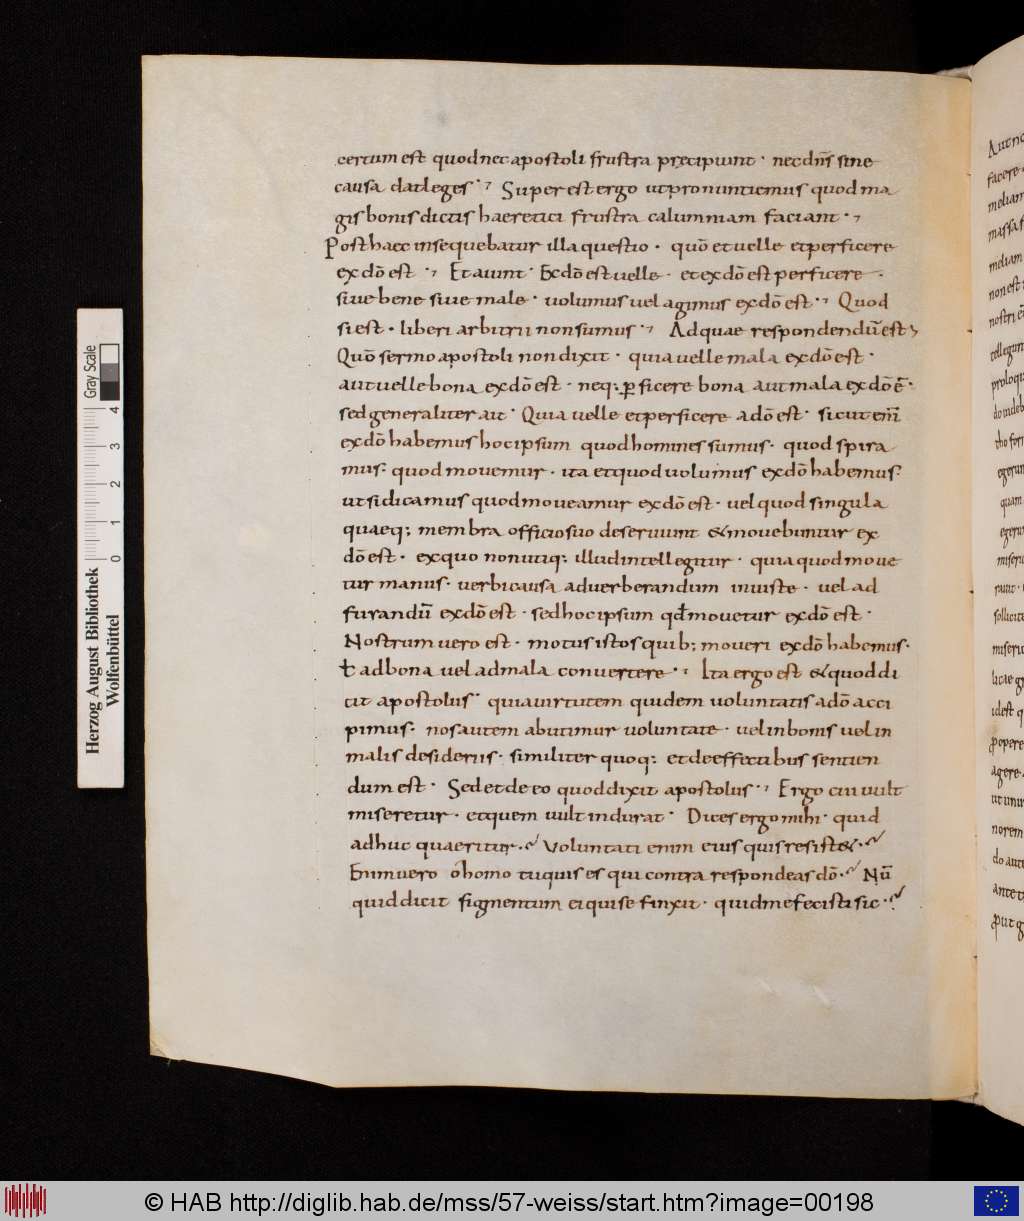 certum est quod nec apostoli frustra pręcipiunt · nec dn̄s sine
causa dat leges · Super est ergo ut pronuntiemus quod ma
gis bonis dictis haeretici frustra calumniam faciant ·
Post haec insequebatur illa questio · quō et uelle et perficere
ex dō est · Et aiunt · Ex dō est uelle · et ex dō est perficere ·
siue bene siue male · uolumus uel agimus ex dō est · Quod
si est · liberi arbitrii non sumus · Ad quae respondendū est
Quō sermo apostoli non dixit · quia uelle mala ex dō est ·
aut uelle bona ex dō est · neq; ꝑficere bona aut mala ex dō ē ·
sed generaliter ait · Quia uelle et perficere a dō est · sicut enī
ex dō habemus hoc ipsum quod homines sumus · quod spira
mus · quod mouemur · ita et quod uolumus ex dō habemus ·
ut si dicamus quod moueamur ex dō est · uel quod singula
quaeq; membra officio suo deseruiunt & mouebuntur ex
dō est · ex quo non utiq; illud intellegitur · quia quod moue
tur manus · uerbi causa ad uerberandum iniuste · uel ad
furandū ex dō est · sed hoc ipsum qđ mouetur ex dō est ·
Nostrum uero est · motus istos quib; moueri ex dō habemus ·
ł ad bona uel ad mala conuertere · Ita ergo est & quod di
cit apostolus · quia uirtutem quidem uoluntatis a dō acci
pimus · nos autem abutimur uoluntate · uel in bonis uel in
malis desideriis · similiter quoq; et de effectibus sentien
dum est · Sed et de eo quod dixit apostolus · Ergo cui uult
miseretur · et quem uult indurat · Dices ergo mihi · quid
adhuc quaeritur · uoluntati enim eius quis resistet ·
Enim uero o homo tu quis es qui contra respondeas dō · Nū
quid dicit figmentum ei qui se finxit · quid me fecisti sic ·
Herzog August Bibliothek
Wolfenbüttel
Gray Scale
0 1 2 3 4
facere
non est
nostri
tellegunt
egerunt
quam
miseri
sollicite
id est q
ꝓpere
agere
norem
do aut
ante
© HAB http://diglib.hab.de/mss/57-weiss/start.htm?image=00198